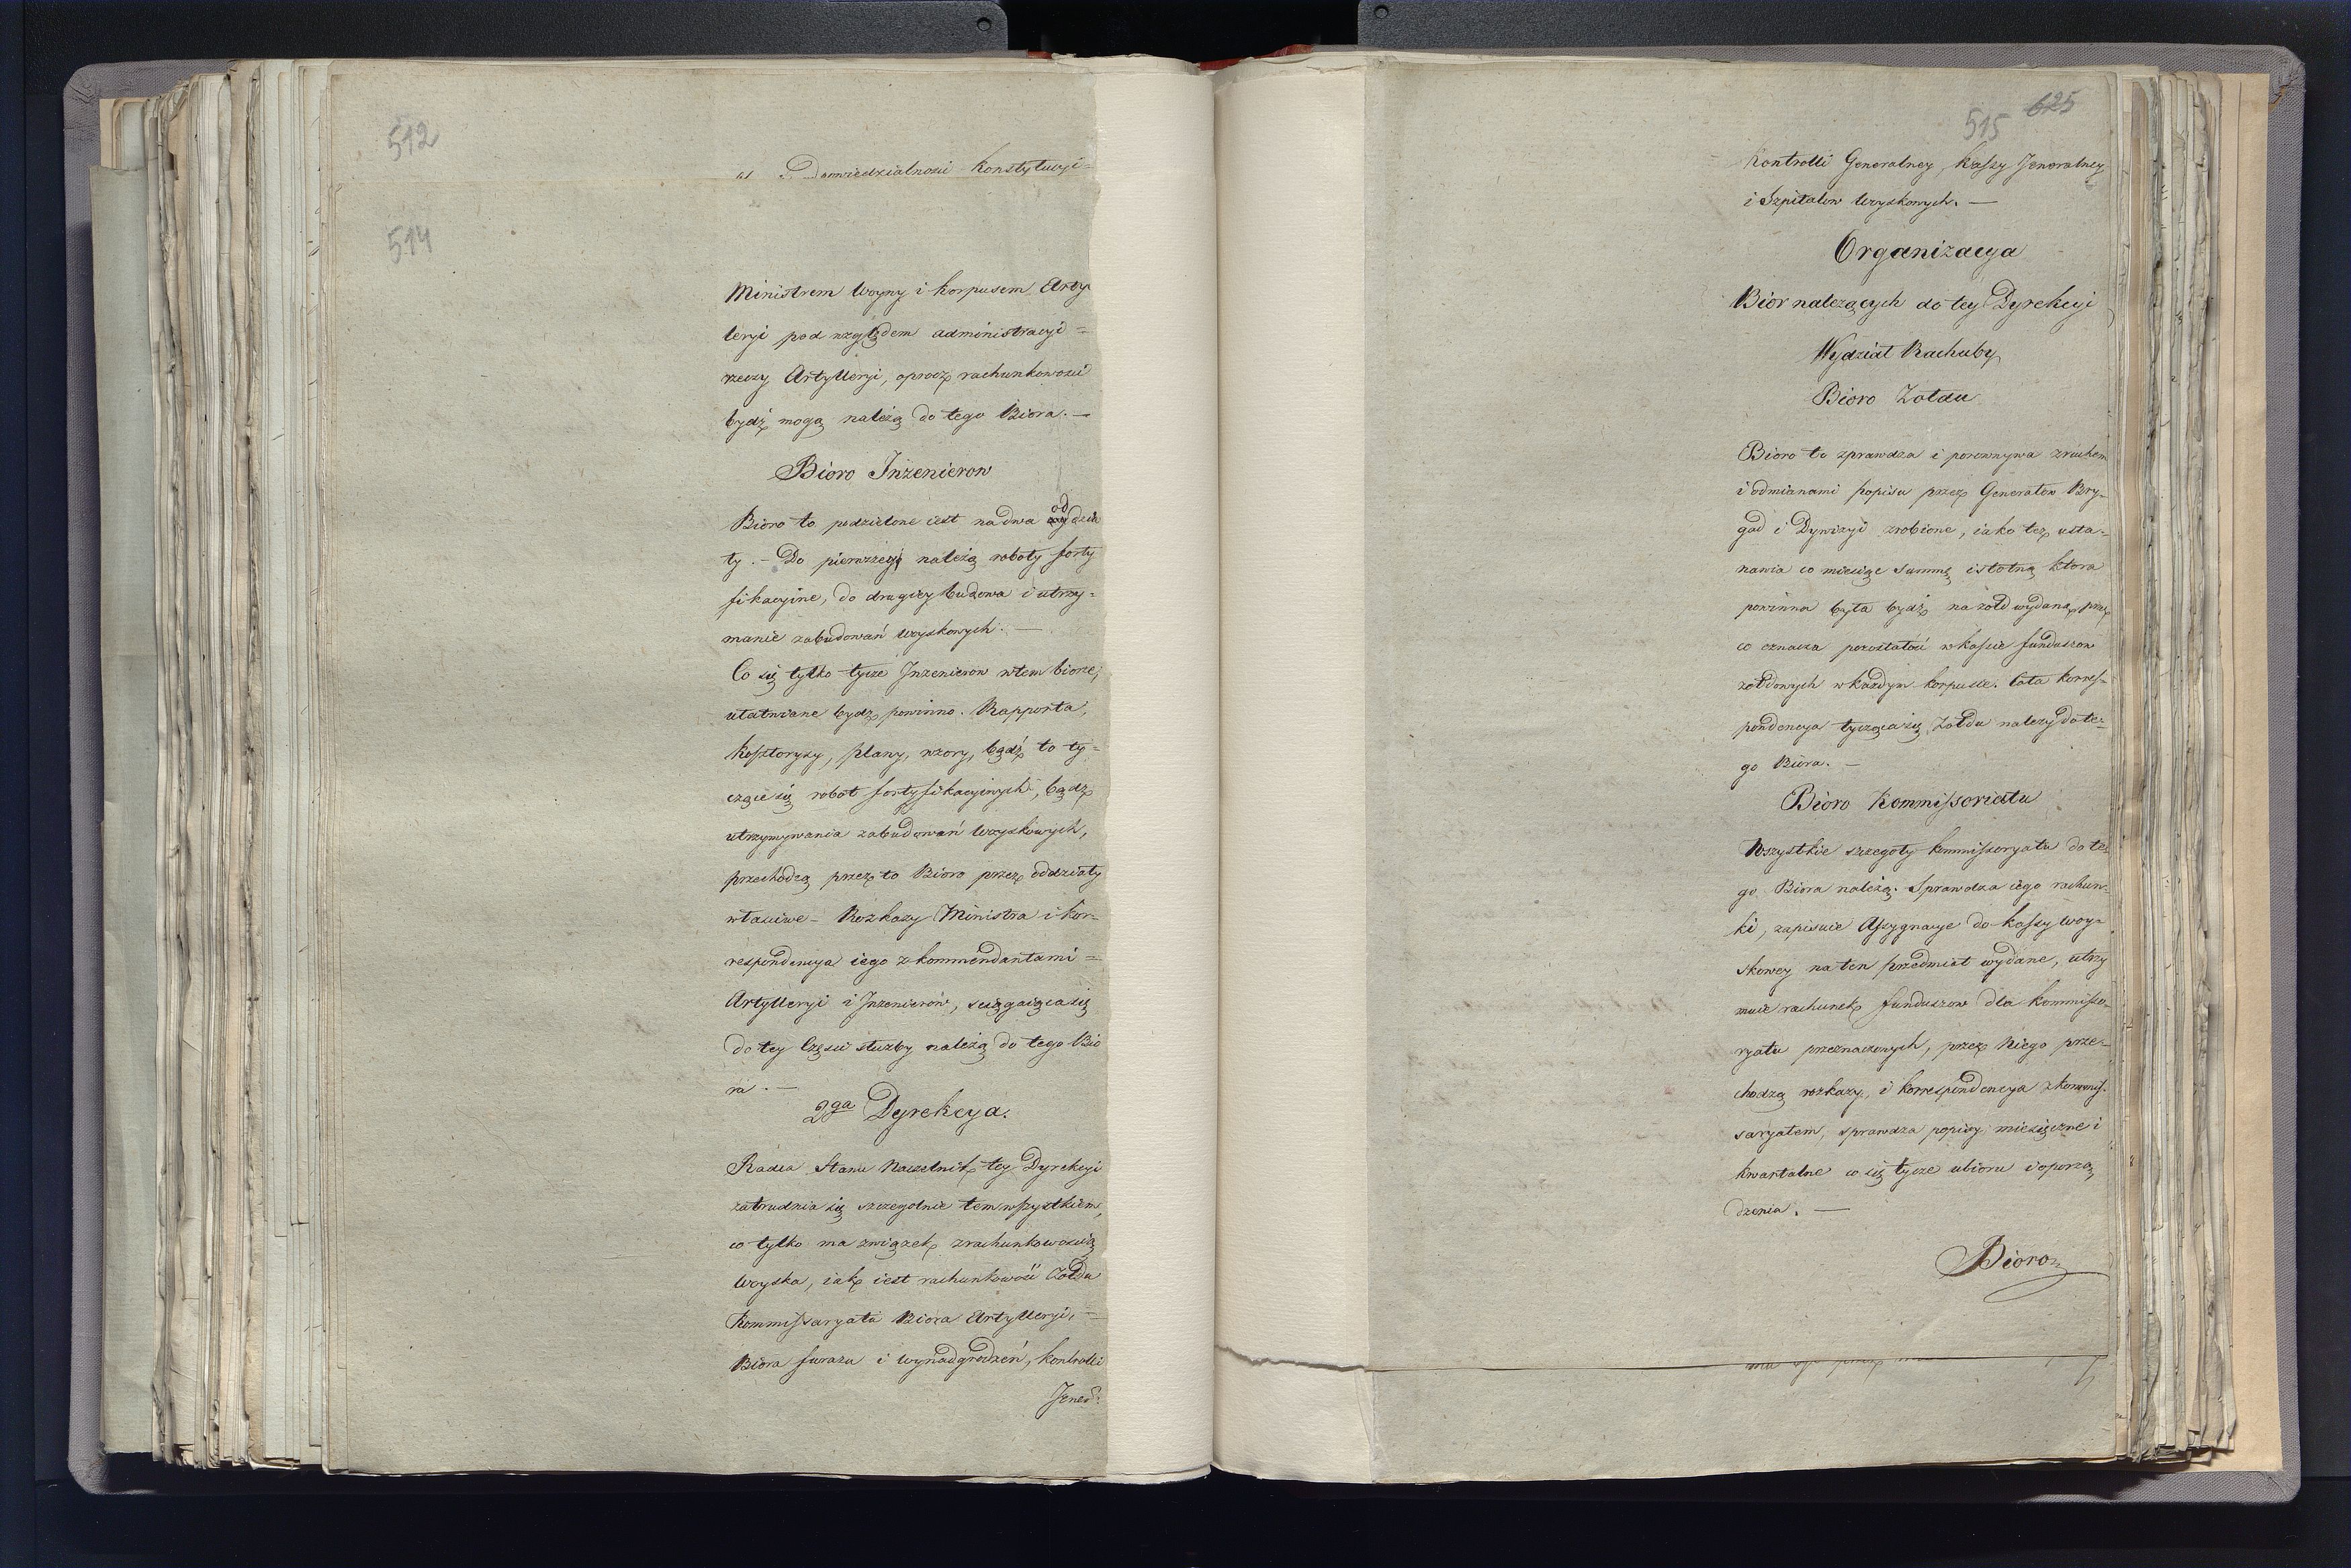 512
Konstytucyi=
514
Ministrem Woyny i korpusem Arty
leryi pod względem administracyi =
rzeczy Artylleryi, oprocz rachunkowosci
bydź mogą należą do tego Biora. —
Bioro Inżenierow
Bioro to podzielone iest na dwa oddzia
ły. — Do pierwszego należą roboty forty
fikacyine, do drugiey budowa i utrzy=
manie zabudowań woyskowych. —
Co się tylko tycze Inżenierow w tem biorze,
ułatwiane bydź powinno. Rapporta,
kosztorysy, plany, wzory, bądź to ty=
czące się robot fortyfikacyinych, bądź
utrzymywania zabudowań woyskowych,
przechodzą przez to Bioro przez oddziały
właściwe — Rozkazy Ministra i kor=
respondencya iego z kommendantami =
Artylleryi i Inżenierów, sciągaiąca się
do tey Częsci służby należą do tego Bio
ra. —
2ga Dyrekcya.
Radca Stanu Naczelnik tey Dyrekcyi
zatrudnia się szczegolnie tem wszystkiem,
co tylko ma związek z rachunkowoscią
woyska, iak iest rachunkowość Żołdu
Kommissaryatu Biora Artylleryi, =
Biora furażu i wynadgrodzeń, kontrolli
Jener:
515 625
Kontrolli Generalney, kassy Jeneralney
i Szpitalow Woyskowych. —
Organizacya
Bior należących do tey Dyrekcyi
Wydział Rachuby
Bioro Żołdu
Bioro to sprawdza i porownywa z ruchem
i odmianami popisu przez Generałow Bry=
gad i Dywizyi zrobione, iako też usta=
nawia co miesiąc summę istotną ktora
powinna była bydź na żołd wydaną, przez
co oznacza pozostałość w kassie funduszow
żołdowych w każdym korpusie. Cała korres=
pondencya tycząca się Żołdu należy do te=
go Biora. —
Bioro Kommissoriatu
Wszystkie szczegoły kommissoryatu do te=
go Biora należą. Sprawdza iego rachun=
ki, zapisuie Assygnacye do kassy woy=
skowey na ten przedmiot wydane, utrzy
muie rachunek funduszow dla kommisso=
ryatu przeznaczonych, przez Niego prze=
chodzą rozkazy, i korrespondencya z kommis=
saryatem, sprawdza popisy miesięczne i
kwartalne co się tycze ubioru i oporzą
dzenia. —
Bioro